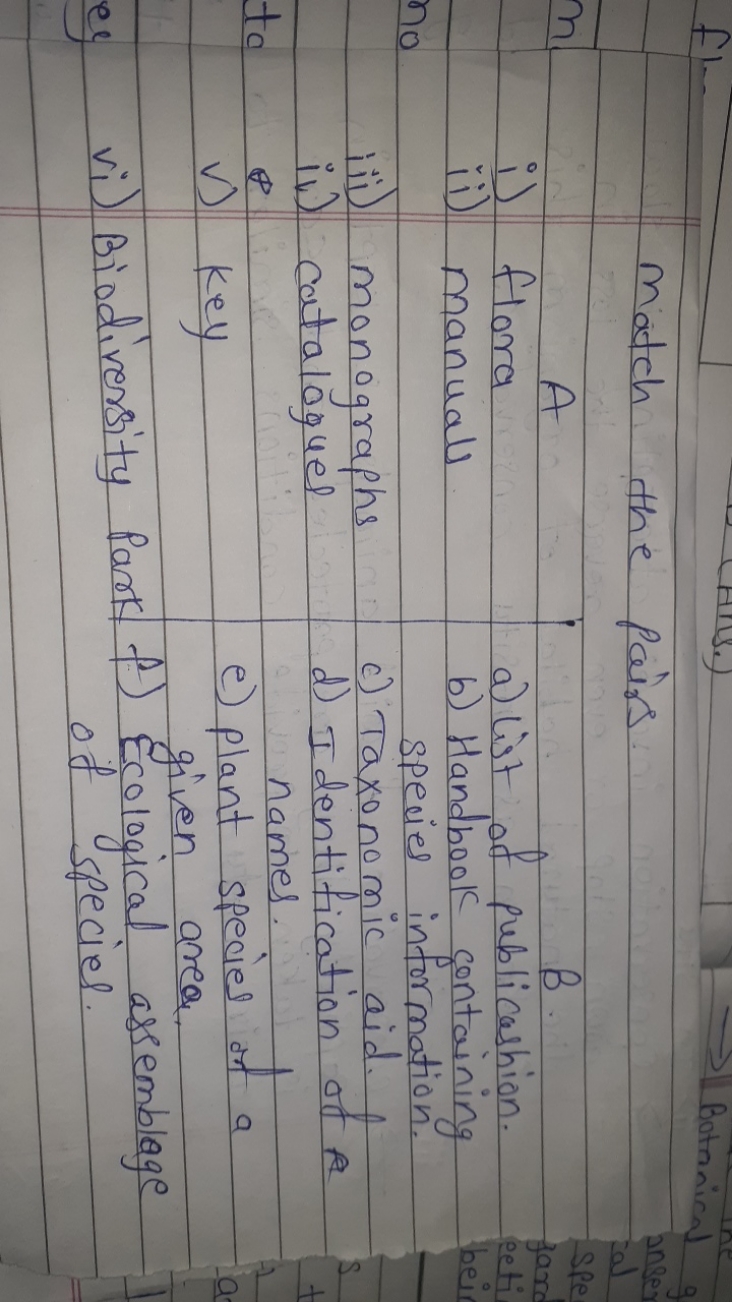 match the pairs.
A B.
i) flora a) list of publicashion.
ii) manuals b) Handbook containing
species information.
iii) monographs c) Taxonomic aid.
iv) catalogues d) Identification of
names.
v) key e) plant species of a
given area.
vi) Biodiversity Park f) Ecological assemblage
of species.
(Ans.)
→ Botanical